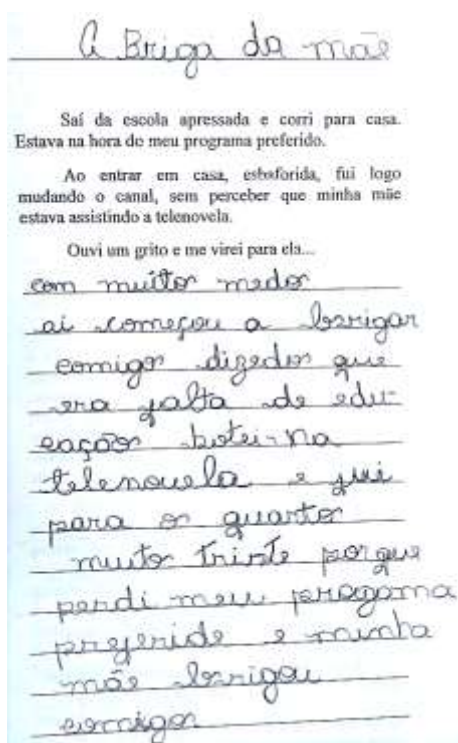 A Briga da mãe
Saí da escola apressada e corri para casa.
Estava na hora do meu programa preferido.
Ao entrar em casa, esbaforida, fui logo
mudando o canal, sem perceber que minha mãe
estava assistindo a telenovela.
Ouvi um grito e me virei para ela...
com muito medo
ai começou a brigar
comigo dizedo que
era falta de edu-
cação botei-na
telenovela e fui
para o quarto
muito triste porque
perdi meu progama
preferido e minha
mãe brigou
comigo